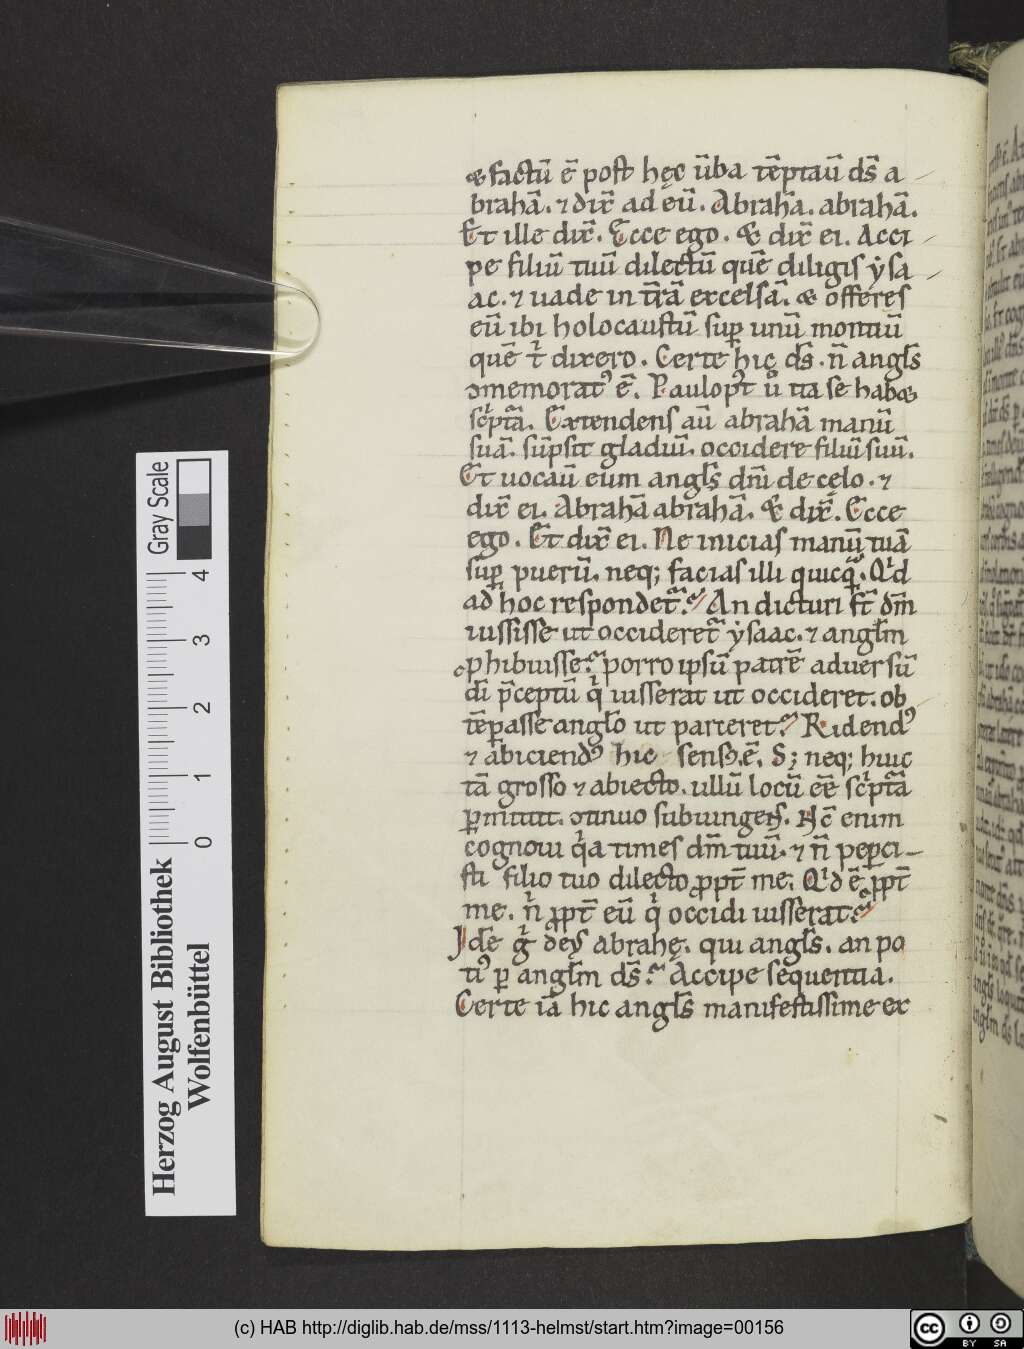 & factū ē post hęc ūba tēptaū ds̄ a
brahā. ⁊ dix̄ ad eū. Abrahā. abrahā.
Et ille dix̄. Ecce ego. & dix̄ ei. Acci
pe filiū tuū dilectū quē diligis ẏsa
ac. ⁊ uade in tr̄ā excelsā. & offeres
eū ibi holocaustū suꝑ unū montiū
quē t̍ dixero. Certe hic ds̄. n̄ angls̄
ꝯmemorat᷒ ē. Paulopꝰt u̾ ita se hab&
sc̍ptā. Extendens aū abrahā manū
suā. sūpsit gladiū. occidere filiū suū.
Et uocaū eum angls̄ dn̄i de cęlo. ⁊
dix̄ ei. Abrahā abrahā. & dix̄. Ecce
ego. Et dix̄ ei. Ne inicias manū tuā
suꝑ puerū. neq; facias illi quicq̄. Qͥd
ad hoc respondet᷒? An dicturi st̄ dm̄
iussisse ut occideret᷒ ẏsaac. ⁊ anglm̄
ꝓhibuisse? porro ipsū patrē aduersū
dī p̄ceptū q̍ iusserat ut occideret. ob
tēꝑasse anglo̅ ut parceret? Ridendꝰ
⁊ abiciendꝰ hic sensꝰ.ē. S; neq; huic
tā grosso ⁊ abiecto. ullū locū eē sc̍ptā
ꝑmittit. ꝯtinuo subiungens. Nc̄ enim
cognoui q̍a times dm̄ tuū. ⁊ n̄ peꝑci
sti filio tuo dilecto ꝓpt̄ me. Qͥd ē ꝓpt̄
me. n̍ ꝓpt̄ eū q̍ occidi iusserat?
Idē g̍ deꝰ abrahę. qui angls̄. an po
tiꝰ ꝑ anglm̄ ds̄? Accipe sequentia.
Certe iā hic angls̄ manifestissime ex
Gray Scale
4
3
2
1
0
Herzog August Bibliothek
Wolfenbüttel
(c) HAB http://diglib.hab.de/mss/1113-helmst/start.htm?image=00156
cc
BY SA